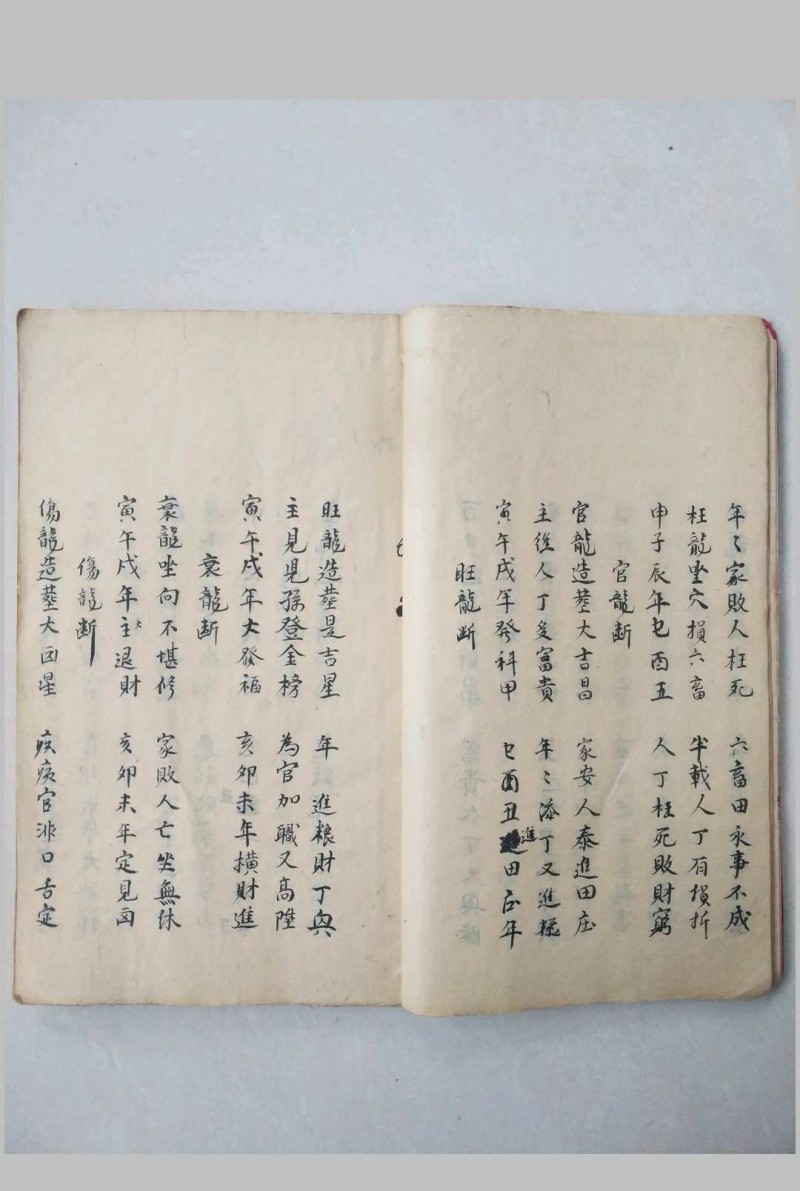 年〻家敗人枉死 六畜田永事不成
枉龍坐穴損六畜 半載人丁有損折
申子辰年乜酉五 人丁枉死敗財窮
官龍造塟大吉昌 家安人泰進田庄
官龍断
主後人丁多富貴 年〻添丁又進
寅午戌年發科甲 乜酉丑進田
旺龍断
旺龍造塟是吉星 年進粮財丁與
主見児孫登金榜 為官加職又高陞
寅午戌年大發福 亥卯未年横財進
衰龍断
衰龍坐向不堪修 家敗人亡坐無休
寅午戌年主退財 亥卯未年定見凶
傷龍断
傷龍造塟大凶星 疾病官非口舌定